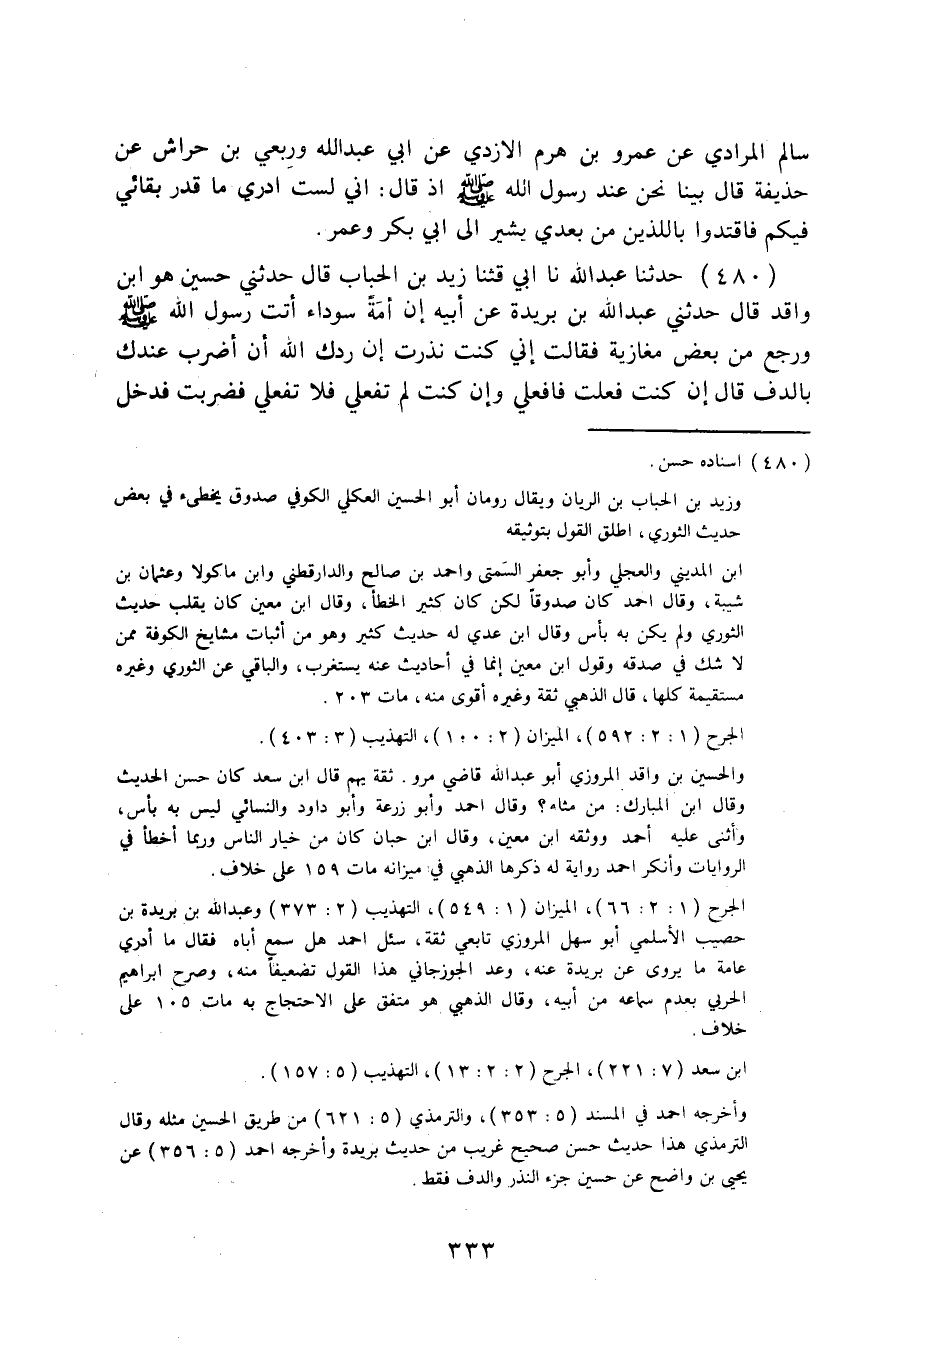 سالم المرادي عن عمرو بن هرم الازدي عن ابي عبدالله وربعي بن حراش عن
حذيفة قال بينا نحن عند رسول الله ﷺ اذ قال: اني لست ادري ما قدر بقائي
فيكم فاقتدوا باللذين من بعدي يشير الى ابي بكر وعمر.
(٤٨٠) حدثنا عبدالله نا ابي قثنا زيد بن الحباب قال حدثني حسين هو ابن
واقد قال حدثني عبدالله بن بريدة عن أبيه إن أمَةً سوداء أتت رسول الله ﷺ
ورجع من بعض مغازية فقالت إني كنت نذرت إن ردك الله أن أضرب عندك
بالدف قال إن كنت فعلت فافعلي وإن كنت لم تفعلي فلا تفعلي فضربت فدخل
(٤٨٠) اسناده حسن.
وزيد بن الحباب بن الريان ويقال رومان أبو الحسين العكلي الكوفي صدوق يخطىء في بعض
حديث الثوري، اطلق القول بتوثيقه
ابن المديني والعجلي وأبو جعفر السَمتى واحمد بن صالح والدارقطني وابن ماكولا وعثمان بن
شيبة، وقال احمد كان صدوقاً لكن كان كثير الخطأ، وقال ابن معين كان يقلب حديث
الثوري ولم يكن به بأس وقال ابن عدي له حديث كثير وهو من أثبات مشايخ الكوفة ممن
لا شك في صدقه وقول ابن معين إنما في أحاديث عنه يستغرب، والباقي عن الثوري وغيره
مستقيمة كلها، قال الذهبي ثقة وغيره أقوى منه، مات ٢٠٣.
الجرح (١: ٢: ٥٩٢)، الميزان (٢: ١٠٠)، التهذيب (٣: ٤٠٣).
والحسين بن واقد المروزي أبو عبدالله قاضي مرو. ثقة يهم قال ابن سعد كان حسن الحديث
وقال ابن المبارك: من مثله؟ وقال احمد وأبو زرعة وأبو داود والنسائي ليس به بأس،
وأثنى عليه أحمد ووثقه ابن معين، وقال ابن حبان كان من خيار الناس وربما أخطأ في
الروايات وأنكر احمد رواية له ذكرها الذهبي في ميزانه مات ١٥٩ على خلاف.
الجرح (١: ٢: ٦٦)، الميزان (١: ٥٤٩)، التهذيب (٢: ٣٧٣) وعبدالله بن بريدة بن
حصيب الأسلمي أبو سهل المروزي تابعي ثقة، سئل احمد هل سمع أباه فقال ما أدري
عامة ما يروى عن بريدة عنه، وعد الجوزجاني هذا القول تضعيفاً منه، وصرح ابراهيم
الحربي بعدم سماعه من أبيه، وقال الذهبي هو متفق على الاحتجاج به مات ١٠٥ على
خلاف.
ابن سعد (٧: ٢٢١)، الجرح (٢: ٢: ١٣)، التهذيب (٥: ١٥٧).
وأخرجه احمد في المسند (٥: ٣٥٣)، والترمذي (٥: ٦٢١) من طريق الحسين مثله وقال
الترمذي هذا حديث حسن صحيح غريب من حديث بريدة وأخرجه احمد (٥: ٣٥٦) عن
يحيى بن واضح عن حسين جزء النذر والدف فقط.
٣٣٣